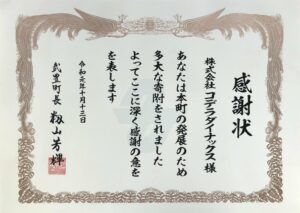 感謝状
株式会社コデラダイナックス 様
あなたは本町の発展のため
多大な寄附をされました
よってここに深く感謝の意を
を表します
令和元年十月十三日
武豊町長 籾山芳輝